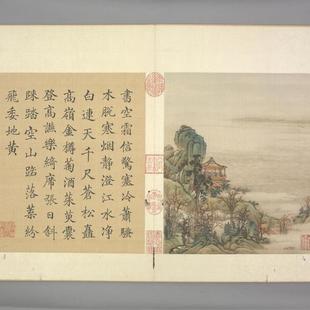 書空霜信驚塞冷蕭騷
木脫寒烟靜澄江水淨
白連天千尺蒼松矗
高嶺金樽菊酒茱萸囊
登高讌樂綺席張日斜
踏空山路落葉紛
飛委地黃